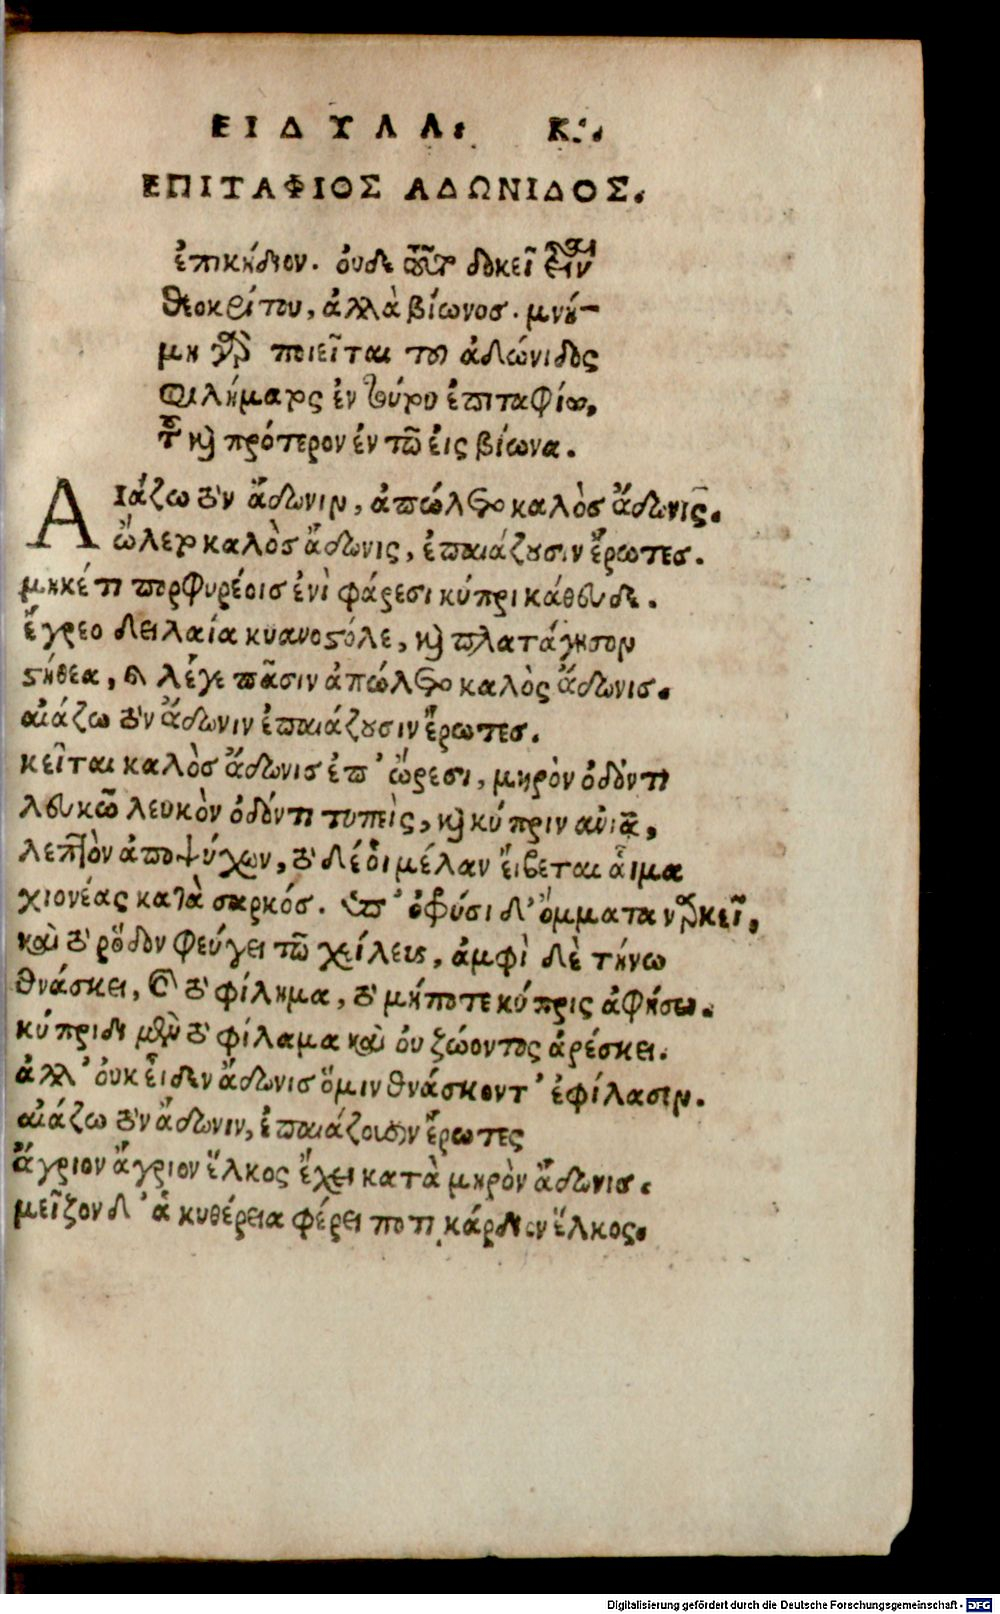 ΕΙΔΥΛΛ. Κ.
ΕΠΙΤΑΦΙΟΣ ΑΔΩΝΙΔΟΣ.
ἐπικήδιον. ὀυδὲ τοῦτο δοκεῖ εἶναι
θεοκρίτου, ἀλλὰ βίωνος. μνή-
μη γὰρ ποιεῖται τοῦ ἀδώνιδος
φιλήματος ἐν τούτῳ ἐπιταφίῳ,
καὶ πρότερον ἐν τῶ ἐις βίωνα.
ΑΙάζω τὸν ἄδωνιν, ἀπώλετο καλὸς ἄδωνις.
ὤλετο καλὸς ἄδωνις, ἐπαιάζουσιν ἔρωτες.
μηκέτι πορφυρέοις ἐνὶ φάρεσι κύπρι κάθευδε.
ἔγρεο δειλαία κυανοστόλε, καὶ πλατάγησον
στήθεα, καὶ λέγε πᾶσιν ἀπώλετο καλὸς ἄδωνις.
αἰάζω τὸν ἄδωνιν ἐπαιάζουσιν ἔρωτες.
κεῖται καλὸς ἄδωνις ἐπ' ὤρεσι, μηρὸν ὀδόντι
λευκῶ λευκὸν ὀδόντι τυπεὶς, καὶ κύπριν ἀνιᾶ,
λεπτὸν ἀποψύχων, τὸ δέ ὁι μέλαν ἔιβεται ἇιμα
χιονέας κατὰ σαρκός. ὑπ' ὀφρύσι δ' ὄμματα ναρκεῖ,
καὶ τὸ ῥόδον φεύγει τῶ χείλεος, ἀμφὶ δὲ τήνω
θνάσκει, καὶ τὸ φίλημα, τὸ μήποτε κύπρις ἀφήσει.
κύπριδι μὲν τὸ φίλαμα καὶ ὀυ ζώοντος ἀρέσκει.
ἀλλ' ὀυκ ἔιδεν ἄδωνις ὅμιν θνάσκοντ' ἐφίλασεν.
αἰάζω τὸν ἄδωνιν, ἐπαιάζουσιν ἔρωτες
ἄγριον ἄγριον ἕλκος ἔχει κατὰ μηρὸν ἄδωνις.
μεῖζον δ' ἁ κυθέρεια φέρει ποτι κάρδιον ἕλκος.
Digitalisierung gefördert durch die Deutsche Forschungsgemeinschaft - DFG